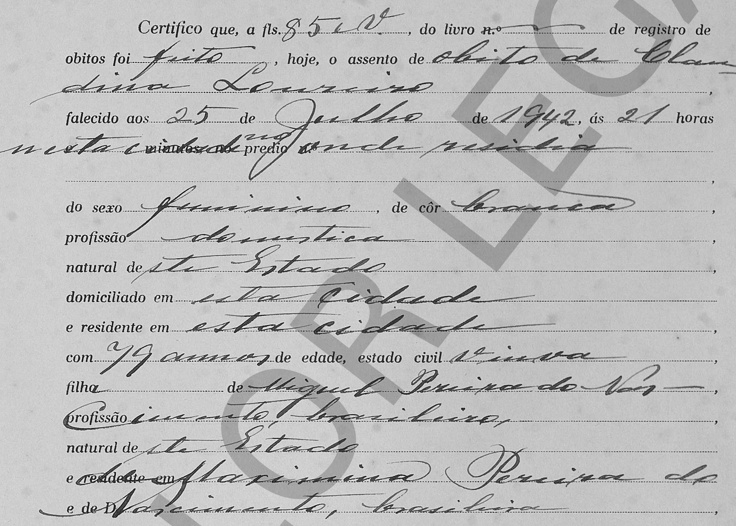 Certifico que, a fls. 85 V., do livro n.º de registro de
obitos foi feito, hoje, o assento de obito de Clau-
dina Loureiro,
falecido aos 25 de Julho de 1942, ás 21 horas
nesta cidade no predio onde residia
,
do sexo feminino, de côr branca,
profissão domestica,
natural deste Estado
domiciliado em esta cidade
e residente em esta cidade,
com 79 annos de edade, estado civil viuva,
filha de Miguel Pereira do Nas-,
profissão cimento, brasileiro,
natural deste Estado
e residente em de Maximina Pereira do
e de D. Nascimento, brasileira,
OR LEG